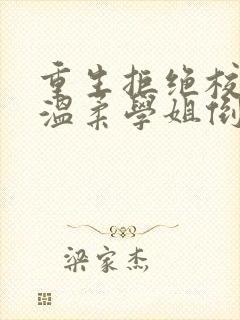 重生拒绝校
溫柔學姐倒
梁家杰